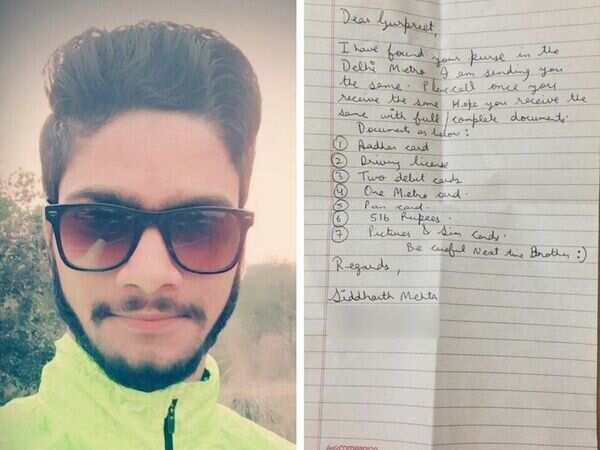 Dear Gurpreet,
I have found your purse in the
Delhi Metro. I am sending you
the same. Please call once you
receive the same. Hope you receive the
same with full/complete documents.
Documents as below:
① Aadhar card
② Driving license
③ Two debit cards
④ One Metro card.
⑤ Pan card.
⑥ 516 Rupees.
⑦ Pictures & Sim cards.
Be careful Next time Brother :)
Regards,
Siddharth Mehta